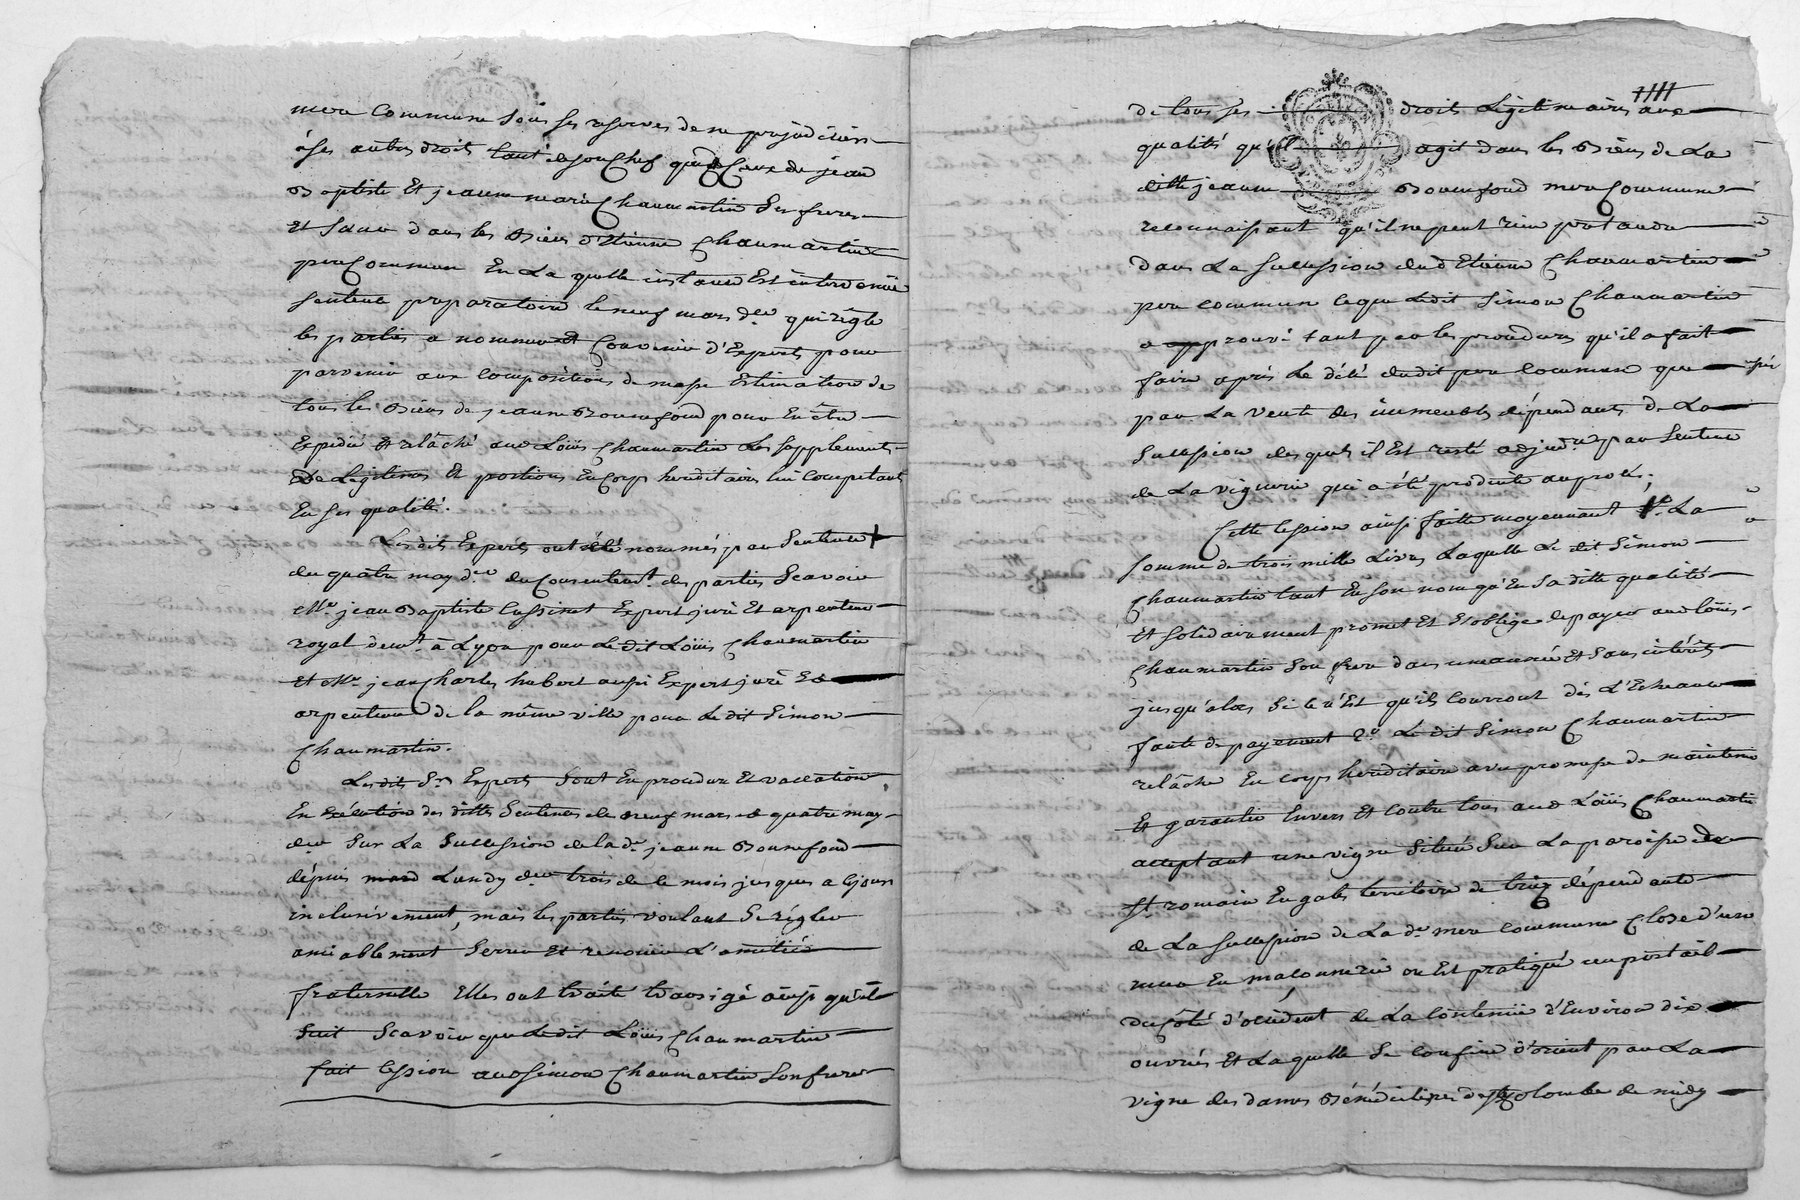 mere Commune sous ses reserves de ne prejudicier
à ses autres droits tant de son Chef que de Ceux de jean
Baptiste Et jeanne marie Chaumartin Ses freres
Et Sœur dans les Biens d'Etienne Chaumartin
pere Commun En La quelle instance Est intervenüe
Sentence preparatoire le neuf mars der qui règle
les parties a nommer et Convenir d'Experts pour
parvenir aux compositions de masse Estimation de
tous les Biens de jeanne Bonnefond pour En être
Expedié et relâché aud Loüis Chaumartin Les supplements
De Légitimes Et portions En Corps hereditaires lui Competant
En ses qualités.
Lesdits Experts ont été nommés par Sentence
du quatre may der du Consentemt des parties Scavoir
Me jean Baptiste Cussinet Expert juré Et arpenteur
royal demt à Lyon pour Le dit Loüis Chaumartin
et Me jean Charles hubert aussi Expert juré Et
arpenteur de la même ville pour Le dit Simon
Chaumartin.
Lesdits Srs Experts Sont En procedure Et vaccation
En Exécution des dittes Sentences de neuf mars et quatre may
der Sur La Succession de lade jeanne Bonnefond
dépuis Lundy der trois de ce mois jusques a ce jour
inclusivement, mais les parties voulant Se régler
amiablement Serrer et renouer L'amitié
fraternelle Elles ont traité transigé ainsy qu'il
Suit Scavoir que Ledit Loüis Chaumartin
fait Cession aud Simon Chaumartin Son frere
de tous ses droits Légitimaires aux
qualités qu'il agit dans les Biens de La
ditte jeanne Bonnefond mere Commune
reconnaissant qu'il ne peut rien pretendre
dans La Succession dud Etienne Chaumartin
pere commun ce que Ledit Simon Chaumartin
a approuvé tant par les procedures qu'il a fait
faire après Le décé dudit pere Commun que
par La vente des immeubles dépendants de La
Succession desquels il Est resté adjudre par Sentence
de La viguerie qui a été produite au procès;
Cette Cession ainsi faitte moyennant 1°. La
Somme de trois mille Livres Laquelle Le dit Simon
Chaumartin tant En Son nom qu'En Sa ditte qualité
Et Solidairement promet Et S'oblige de payer aud Loüis
Chaumartin Son frere dans une année Et Sans intérêts
jusqu'alors Si ce n'Est qu'ils Courront dès L'Echeance
faute de payement 2° Le dit Simon Chaumartin
relâche En Corps hereditaire avec promesse de maintenir
Et garantir Envers Et Contre tous aud Loüis Chaumartin
acceptant une vigne Située Sur La paroisse de
St romain En gals territoire de dépendante
de La Succession de Lade mere commune Close d'un
mur En maconnerie ou Est pratiqué un portail
du Côté d'occident de La Contenüe d'Environ dix
ouvrées Et Laquelle Se Confine d'orient par La
vigne des dames Bénédictines de Ste Colombe de midy